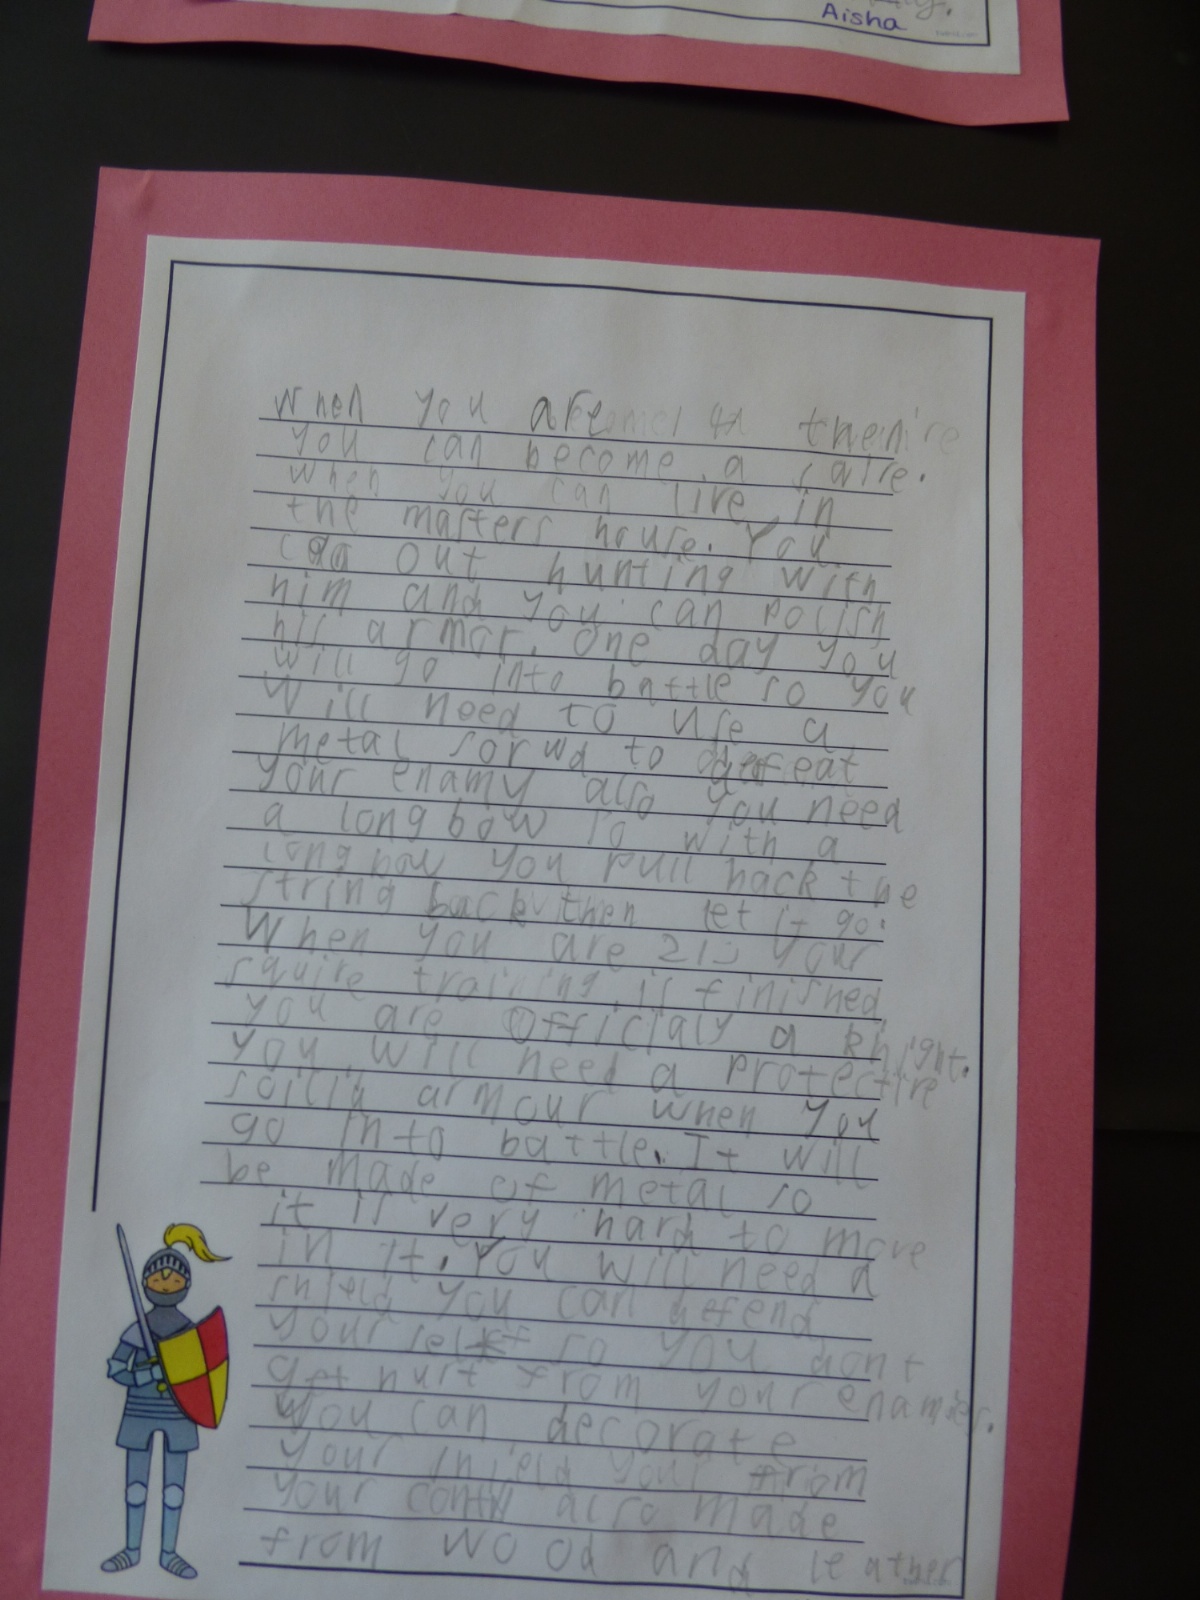 Aisha
When you are 14 then
you can become a
when you can live in
the masters house. You
go out hunting with
him and you can polish
his armor. One day you
will go into battle so you
will need to use a
metal sorwd to defeat
your enamy also you need
a long bow so with a
long bow you pull back the
string back then let it go.
When you are 21 your
squire training is finished
you are officialy a knight.
you will need a protective
soilid armour when you
go into battle. It will
be made of metal so
it is very hard to move
in it. You will need a
shield you can defend
your self so you dont
get hurt from your enamies.
You can decorate
your shield your from
your also made
from wood and leather